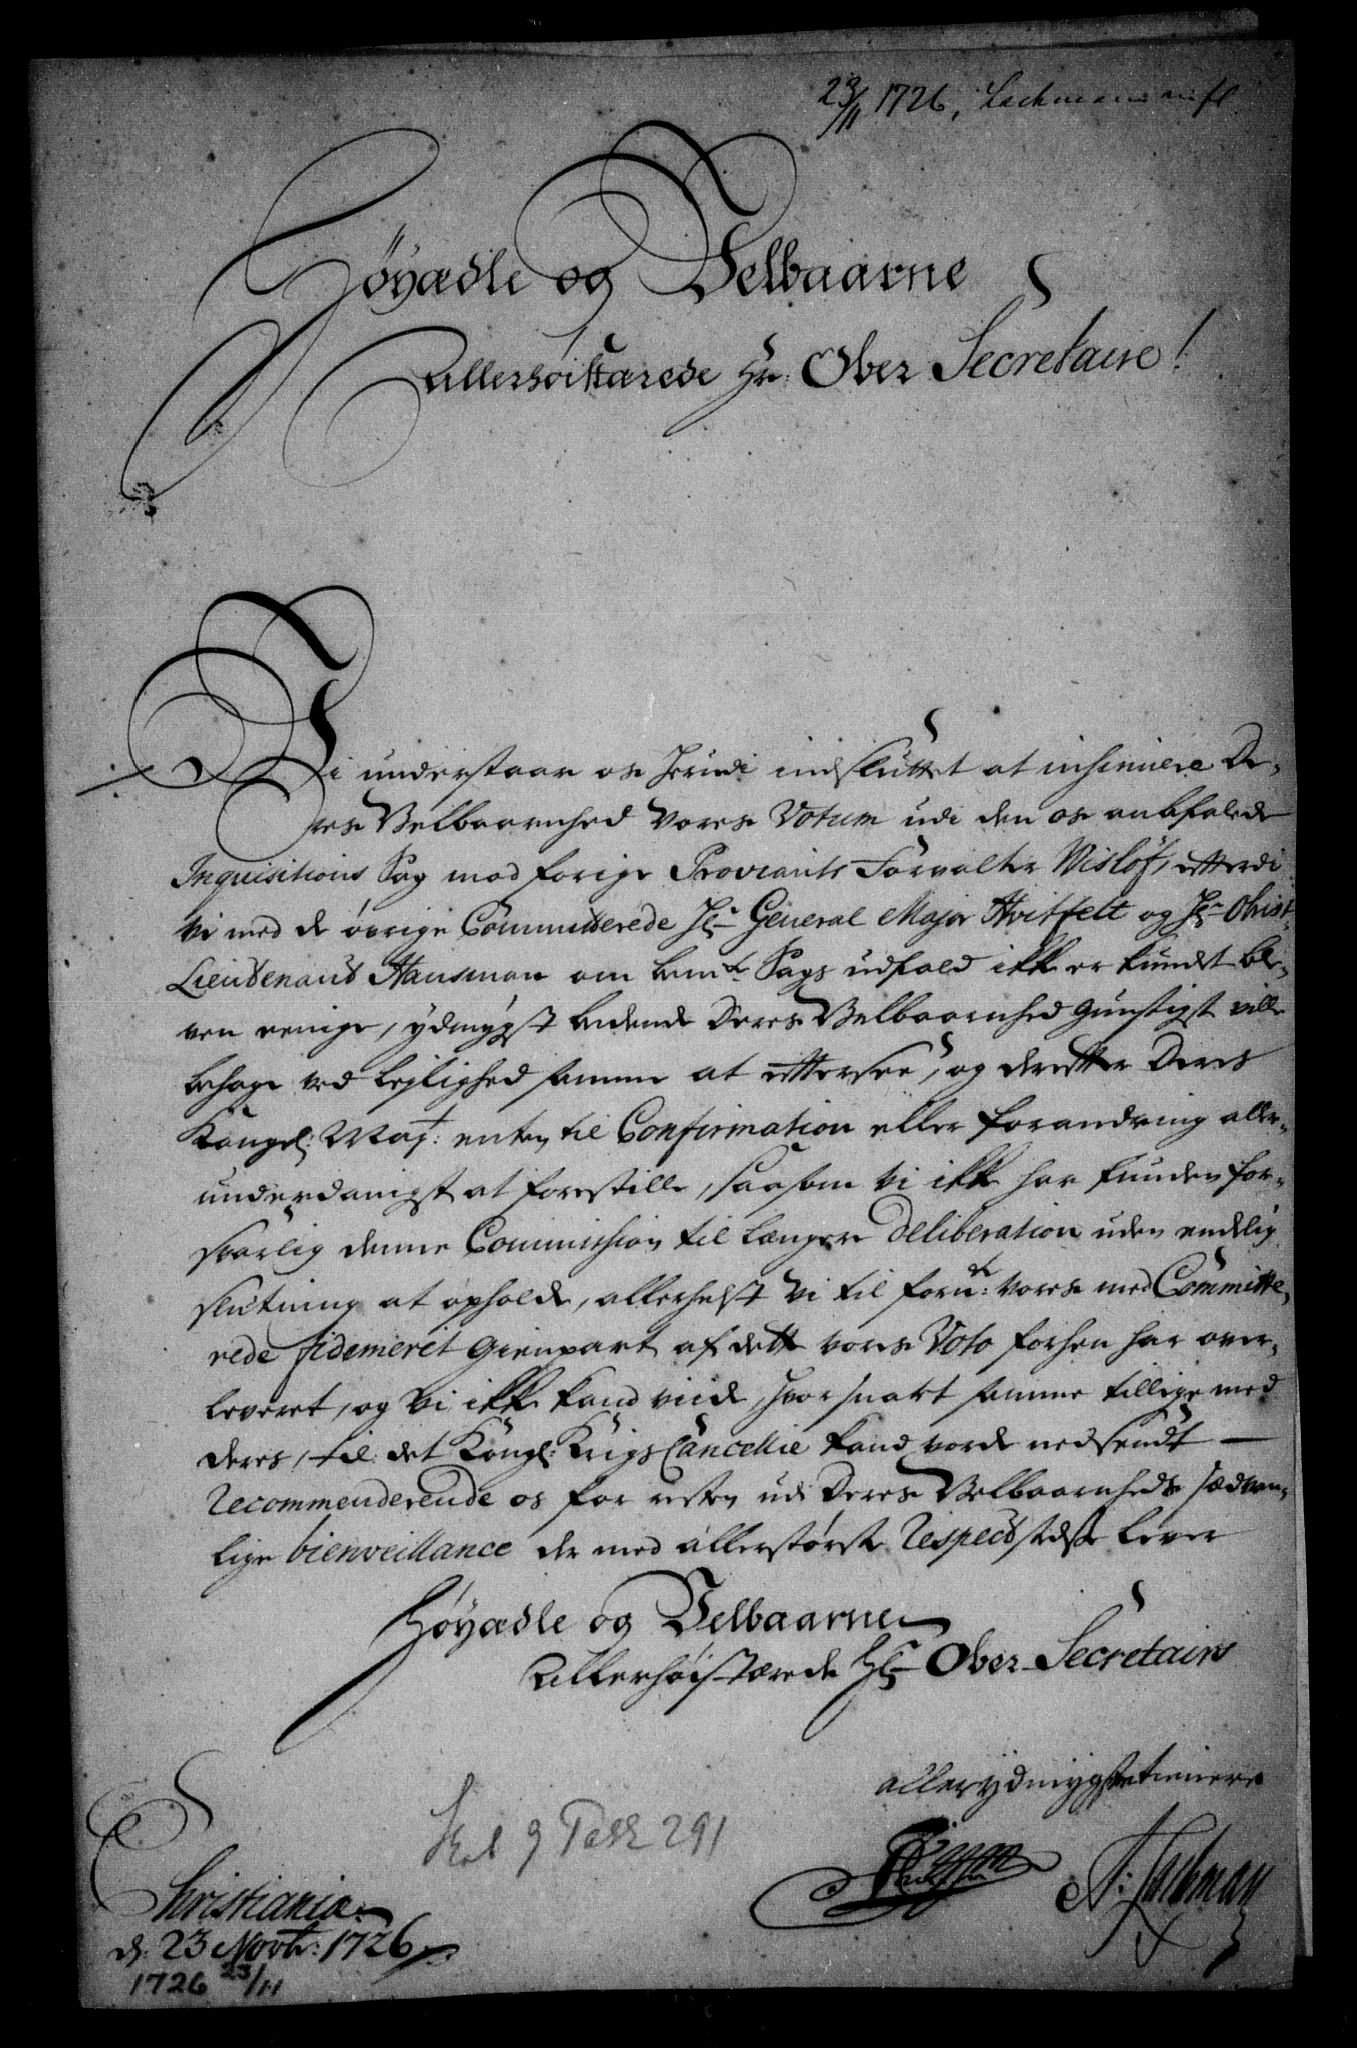 23/11 1726, Lachmann m.fl.
Höyædle og Velbaarne
Allerhöistærede Hr: Ober Secretaire!
Vi understaar os herudi indsluttet at insinuere De-
res Velbaarenhed Vores Votum udi den os anbefalede
Inquisitions Sag mod forige Proviants Forvalter Wislöf, efterdi
vi med de övrige Committerede Hr General Major Hvitfelt og Hr Obrist
Lieutenant Hausman om bemte Sags udfald ikke er kundet ble-
ven eenige, ydmygst bedende Deres Velbaarenhed gunstigst ville
behage ved lejlighed samme at eftersee, og derefter Deres
Kongel: Mayt: enten til Confirmation eller forandring aller-
underdanigst at forestille, saasom vi ikke har funden for-
svarlig denne Commission til længere Deliberation uden endelig
slutning at opholde, allerhelst vi til forne: vores med Committe-
rede fidemeret Gienpart af dette vores Voto forhen har over-
leveret, og vi ikke kand viide, hvor snart samme tillige med
deres, til det Kongl: Krigs Cancellie kand vorde nedsendt —
Recommenderende os for resten udi Deres Velbaarenheds sædvan-
lige bienveillance der med allerstörste Respect stedse lever
Höyædle og Velbaarne
Allerhöistærede Hr Ober Secretairs
allerydmygste tienere
Skab 9 Pakk 291
A: Lachman
Christiania
d: 23 Novbr: 1726
1726 23/11